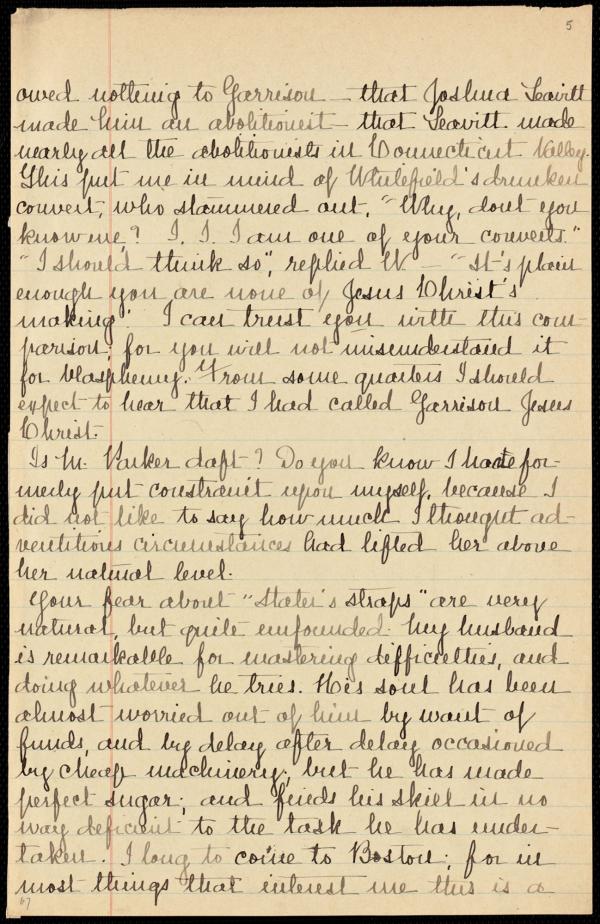 5
owed nothing to Garrison — that Joshua Leavitt
made him an abolitionist — that Leavitt made
nearly all the abolitionists in Connecticut Valley.
This put me in mind of Whitefield's drunken
convert, who stammered out, "Why, dont you
know me,? I. I. I am one of your converts."
"I should think so", replied W — "It's plain
enough you are none of Jesus Christ's
making". I can trust you with this com-
parison; for you will not misunderstand it
for blasphemy. From some quarters I should
expect to hear that I had called Garrison Jesus
Christ.
Is M. Parker daft? Do you know I have for-
merly put constraint upon myself, because I
did not like to say how much I thought ad-
ventitious circumstances had lifted her above
her natural level.
Your fear about "Slater's straps" are very
natural, but quite unfounded. My husband
is remarkable for mastering difficulties, and
doing whatever he tries. His soul has been
almost worried out of him by want of
funds, and by delay after delay occasioned
by cheap machinery; but he has made
perfect sugar; and finds his skill in no
way deficient to the task he has under-
taken. I long to come to Boston; for in
most things that interest me this is a
67